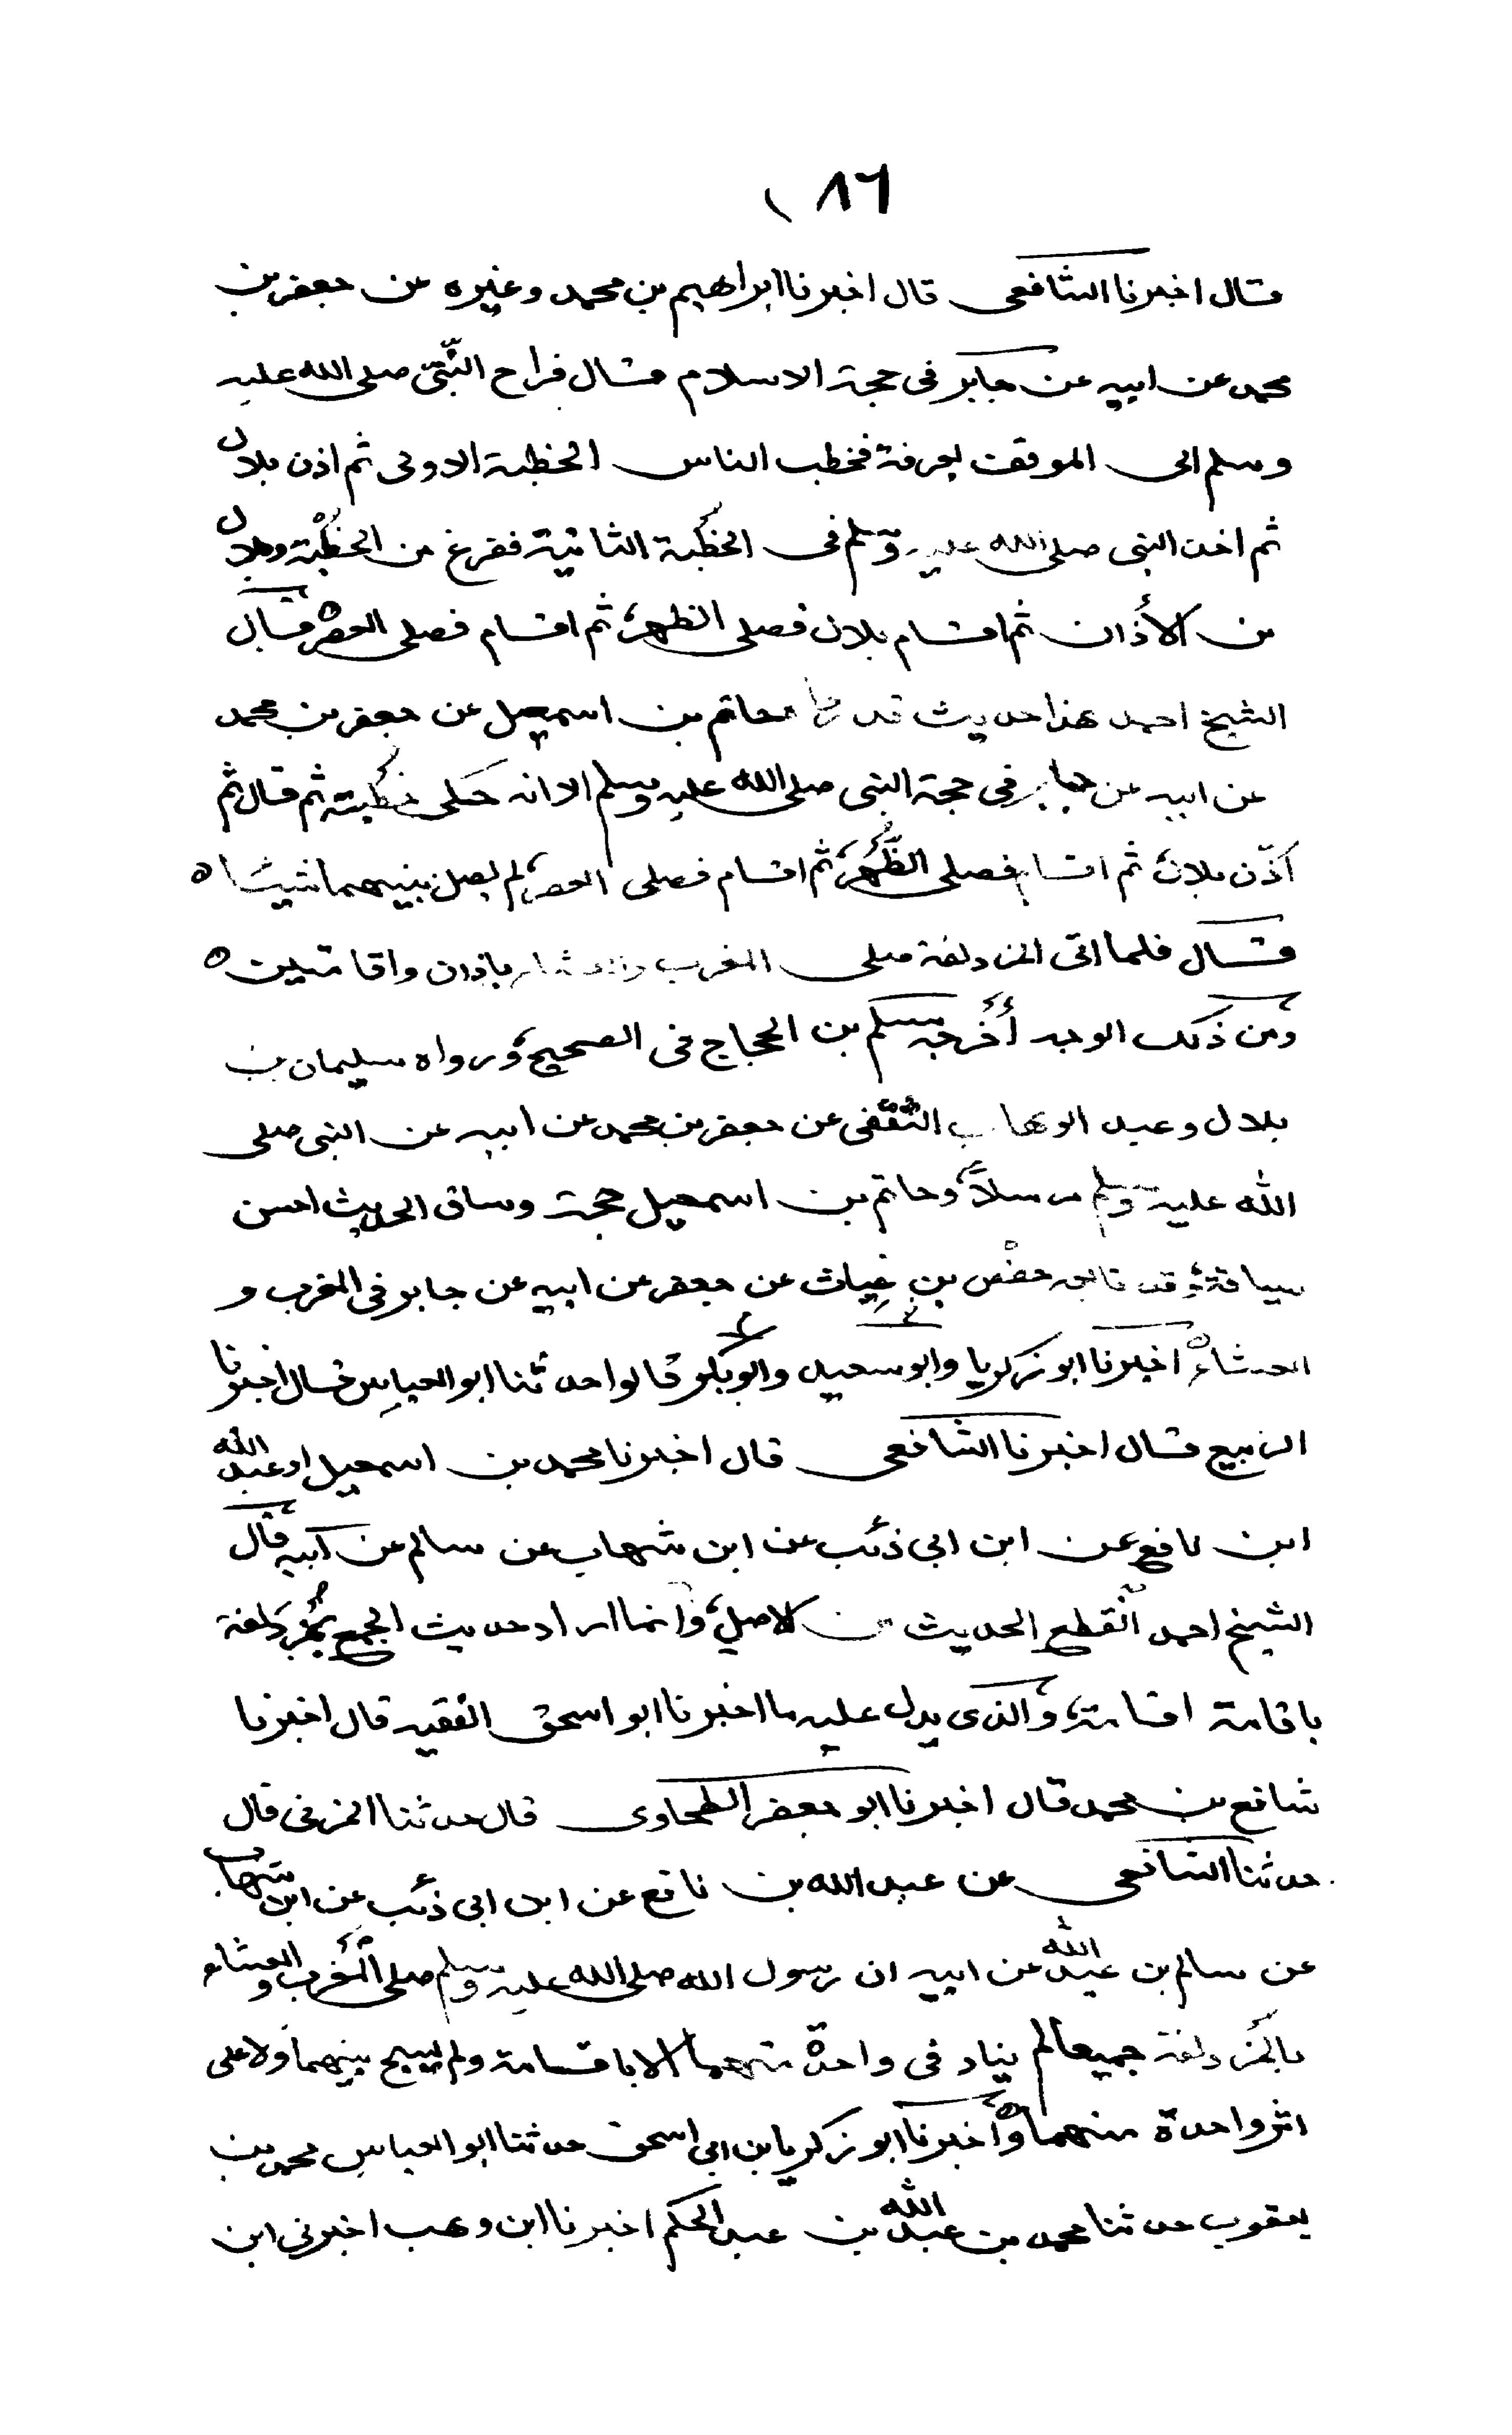 ١٨٦
قال اخبرنا الشافعي قال اخبرنا ابراهيم بن محمد وغيره عن جعفر بن
محمد عن ابيه عن جابر في حجة الاسلام قال فراح النّبيّ صلى الله عليه
وسلم الى الموقف بعرفة فخطب الناس الخطبة الاولى ثم اذن بلال
ثم اخذ النبي صلى الله عليه وسلم في الخطبة الثانية ففرغ من الخطْبة وبلال
من الأذان ثم اقام بلال فصلى الظهر ثم اقام فصلى العصر قال
الشيخ احمد هذا حديث قد حاتم بن اسمعيل عن جعفر بن محمد
عن ابيه عن جابر في حجة النبي صلى الله عليه وسلم الا انه حكى خطبته ثم قال ثم
أذّن بلال ثم اقام فصلى الظُّهر ثم اقام فصلى العصر لم يصل بينهما شيئا ه
قال فلما اتى المزدلفة صلى المغرب والعشاء باذان واقامتين ه
ومن ذلك الوجه أخرجه مسلم بن الحجاج في الصحيح ورواه سليمان بن
بلال وعبد الوهاب الثقفي عن جعفر بن محمد عن ابيه عن النبي صلى
الله عليه وسلم مرسلاً وحاتم بن اسمعيل حجة وساق الحديث احسن
سياقة وقد تابعه حفْص بن غِياث عن جعفر عن ابيه عن جابر في المغرب و
العشاء اخبرنا ابو زكريا وابو سعيد وابو بكر قالوا حدثنا ابو العباس قال اخبرنا
الربيع قال اخبرنا الشافعي قال اخبرنا محمد بن اسمعيل او عبد الله
ابن نافع عن ابن ابي ذئب عن ابن شهاب عن سالم عن ابيه قال
الشيخ احمد انقطع الحديث من الاصل وانما اراد حديث الجمع بمُزدلفة
باقامة اقامة والذي يدل عليه ما اخبرنا ابو اسحق الفقيه قال اخبرنا
شافع بن محمد قال اخبرنا ابو جعفر الطحاوى قال حدثنا المزني قال
حدثنا الشافعي عن عبد الله بن نافع عن ابن ابي ذئب عن ابن شهاب
عن سالم بن عبد الله عن ابيه ان رسول الله صلى الله عليه وسلم صلى المغرب والعشاء
بالمزدلفة جميعا لم يناد في واحدة منهما الا باقامة ولم يسبح بينهما ولا على
اثر واحدة منهما واخبرنا ابو زكريا بن ابي اسحق حدثنا ابو العباس محمد بن
يعقوب حدثنا محمد بن عبد الله بن عبد الحكم اخبرنا ابن وهب اخبرني ابن